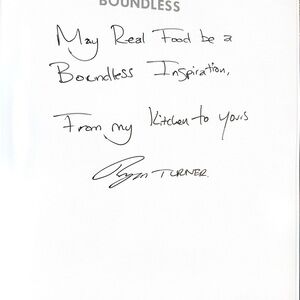 BOUNDLESS
May Real Food be a
Boundless Inspiration,
From my kitchen to yours
Ryan TURNER